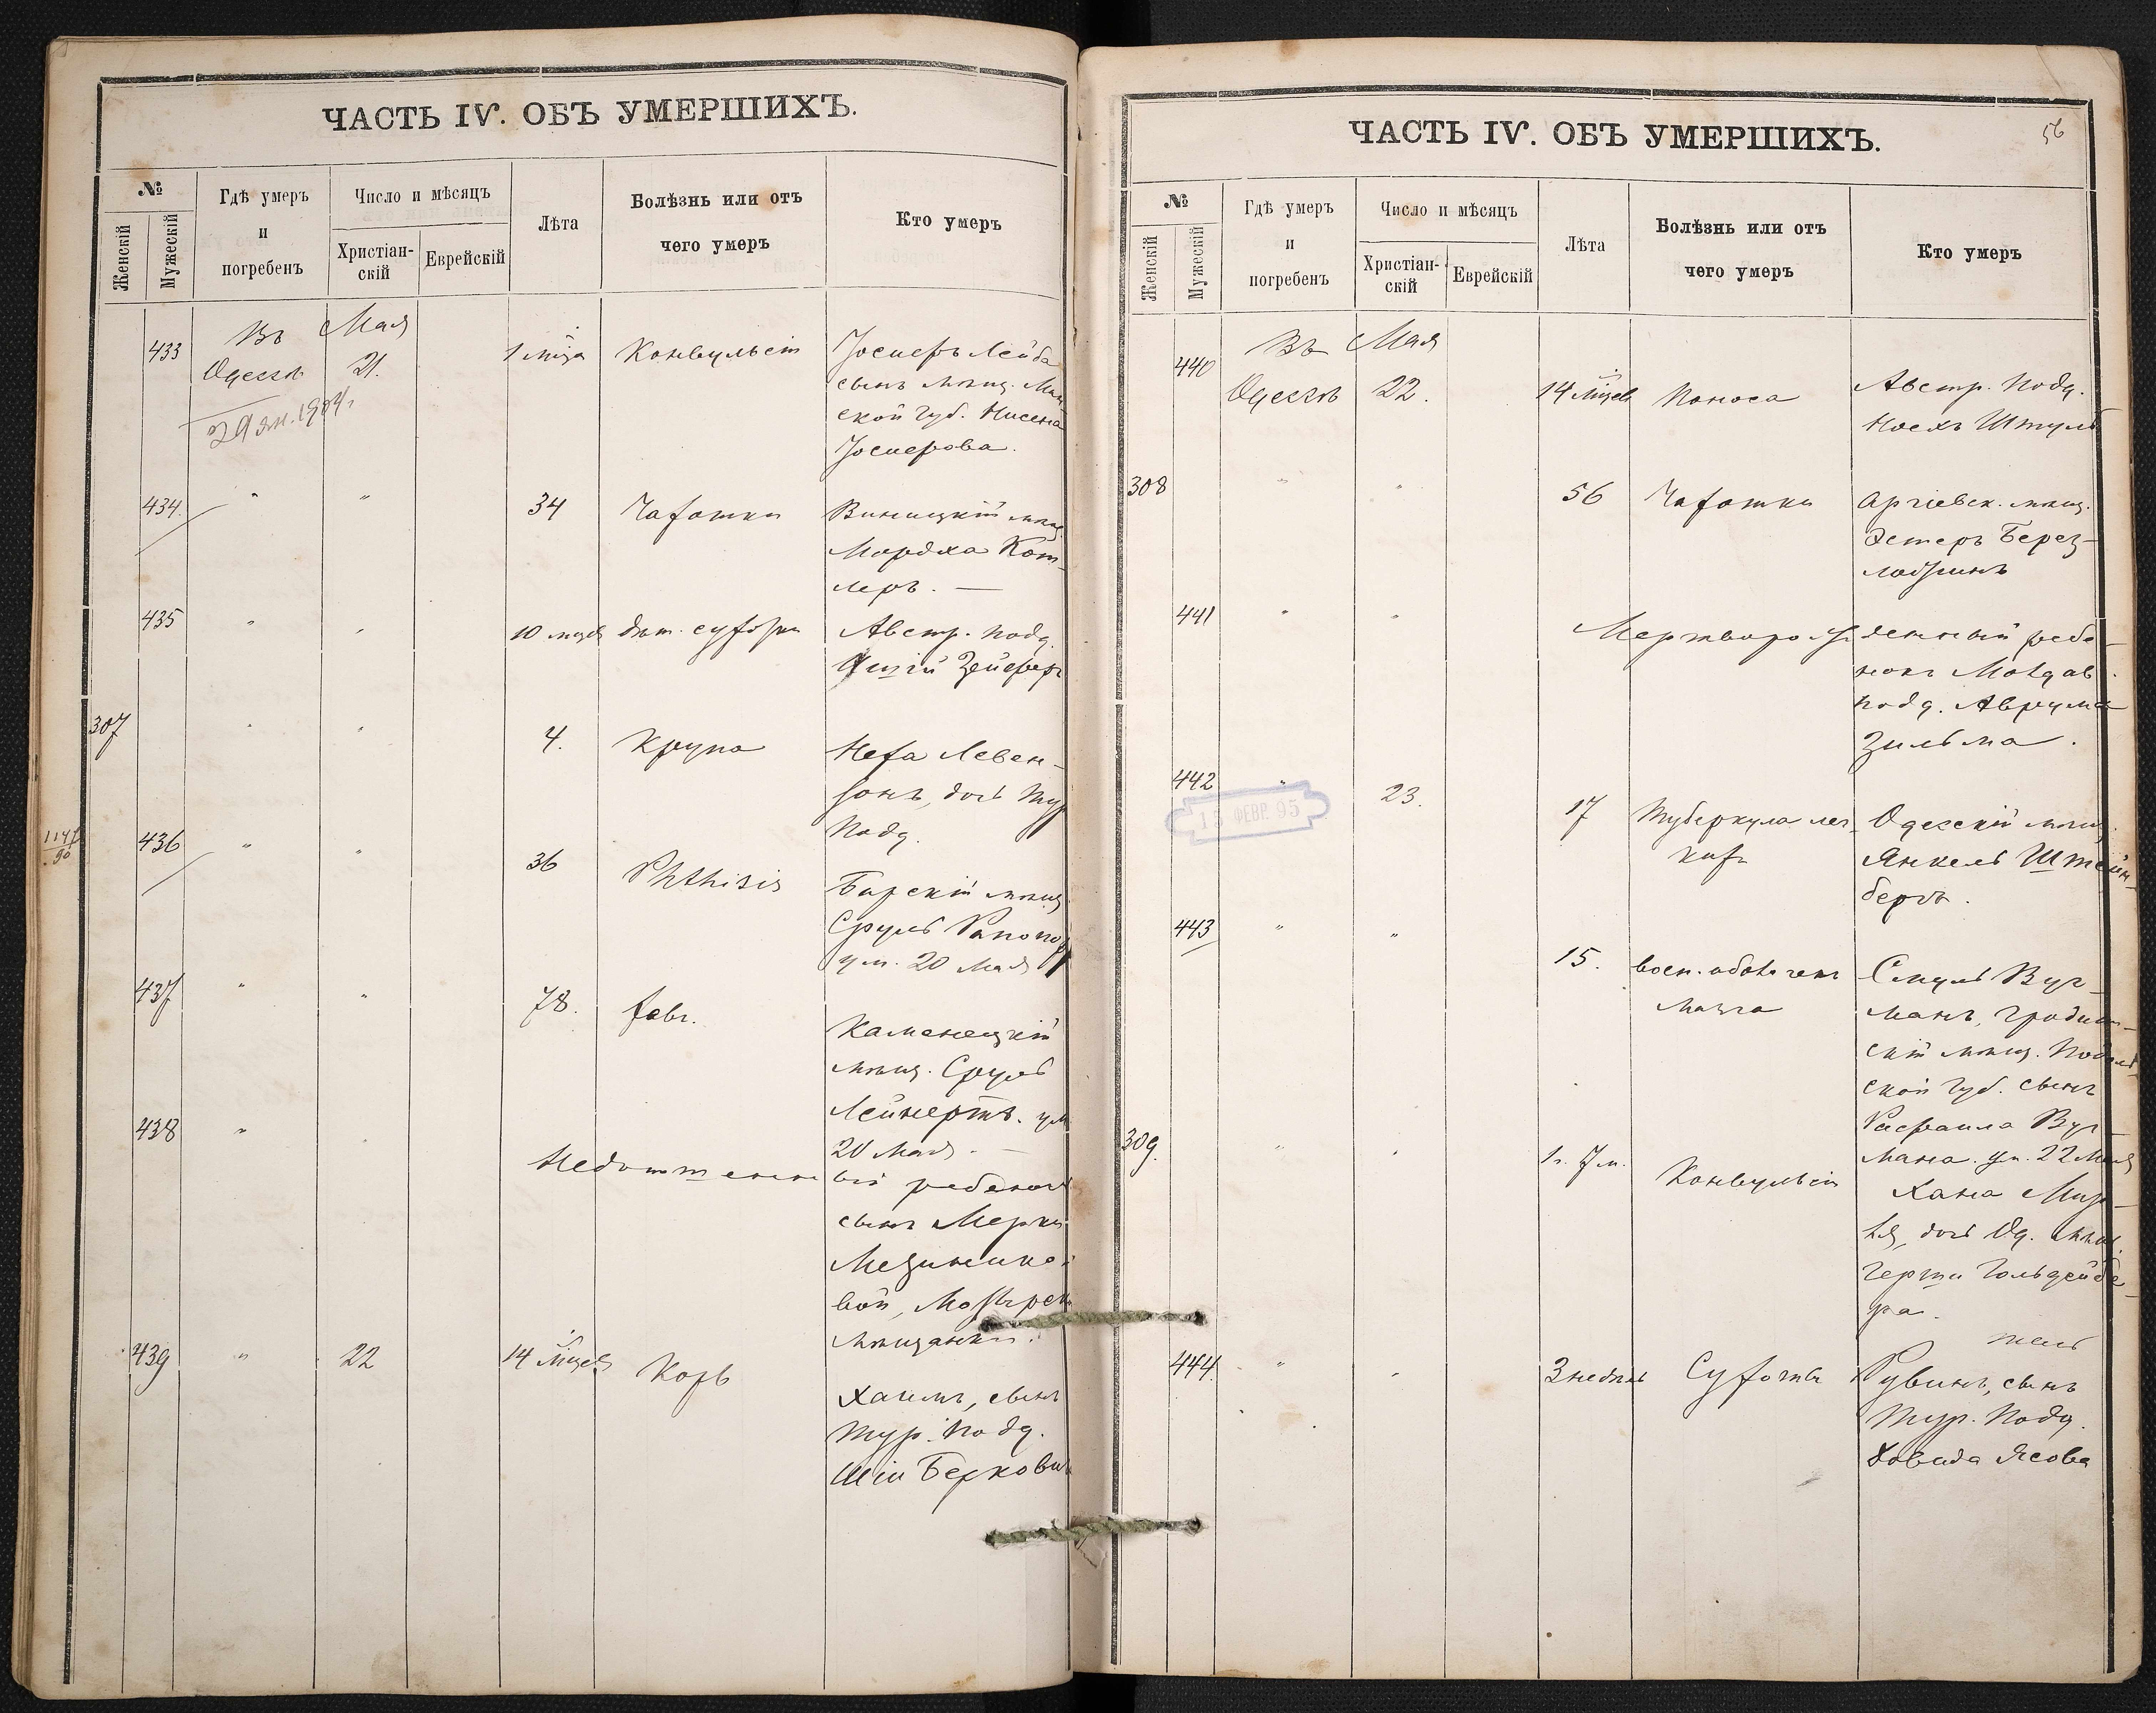 ЧАСТЬ IV. ОБЪ УМЕРШИХЪ.
№
Женскій
Мужескій
Гдѣ умеръ
и
погребенъ
Число и мѣсяцъ
Христіан-
скій
Еврейскій
Лѣта
Болѣзнь или отъ
чего умеръ
Кто умеръ
433
Въ
Одессѣ
Мая
21.
1 м-ца
Конвульсіи
Іосиферъ Лейба
сынъ мѣщ. Мин-
ской губ. Нисена
Іосиферова.
29 ян. 1904 г
434
"
"
34
Чахотки
Виницкій мѣщ.
Мордха Кот-
леръ. —
435
"
"
10 м-цев
Австр. подд.
307
"
"
4.
Крупа
Левен-
сонъ, дочь Тур.
подд.
1141
90
436
"
"
36
Phthisis
Барскій мѣщ.
Сруль Рапопор
ум. 20 Мая
437
"
"
78.
febr.
Каменецкій
мѣщ. Сруль
Лейнертъ. ум
20 Мая. —
438
"
"
Недоношенный ребенокъ
сынъ Мерки
вой, Мозырск.
мѣщанки.
439
"
22
14 м-цев
Корь
Хаимъ, сынъ
Тур. подд.
Шіи Беркович
ЧАСТЬ IV. ОБЪ УМЕРШИХЪ.
56
№
Женскій
Мужескій
Гдѣ умеръ
и
погребенъ
Число и мѣсяцъ
Христіан-
скій
Еврейскій
Лѣта
Болѣзнь или отъ
чего умеръ
Кто умеръ
440
Въ
Одессѣ
Мая
22.
14 м-цев
Поноса
Австр. подд.
308
"
"
56
Чахотки
Оргіевск. мѣщ.
Эстеръ Берез-
441
"
"
Мертворожденный ребе-
нокъ Молдав.
подд. Аврума
Зильма.
442
"
23.
17
Туберкула лег-
кихъ
Одесскій мѣщ.
Янкель Штейн-
бергъ.
15 ФЕВР. 95
443
"
"
15.
восп. оболочекъ
мозга
Смуль Вуг-
манъ,
скій мѣщ. Подоль-
ской губ. сынъ
Рафаила Вуг-
мана. ум. 22 Мая
309.
"
"
1 г. 7 м.
Конвульсіи
Хана Мир-
ля, дочь Од. мѣщ.
Герша Гольденбе-
ра.
444
"
"
3 недѣль
Сухоты
Рувинъ, сынъ
Тур. подд.
Довида Ясова